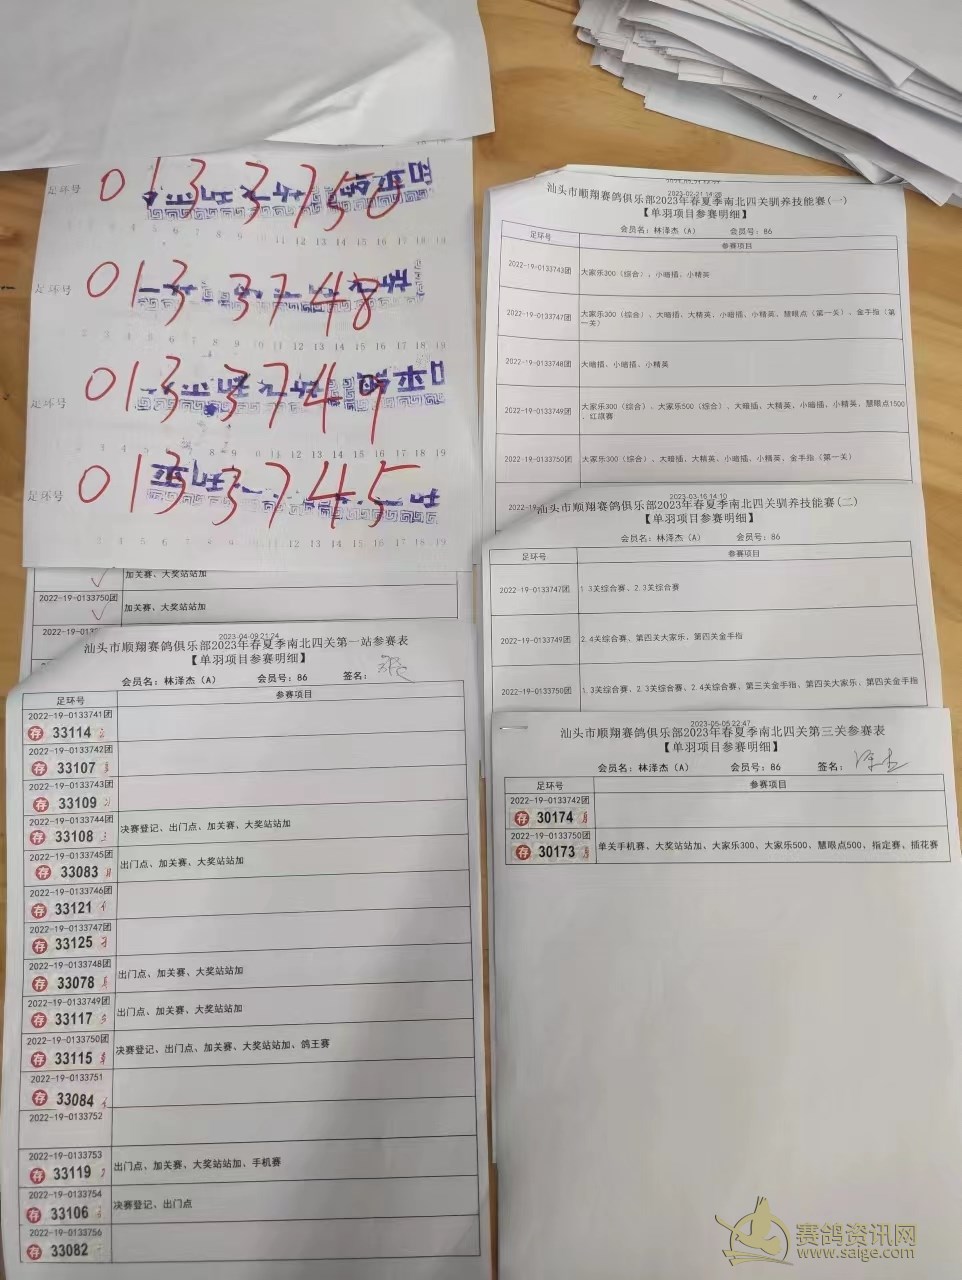 足环号 01 3 3750
3 4 5 6 7 8 9 10 11 12 13 14 15 16 17 18 19
足环号 013 3748
足环号 013 3749
足环号 013 3745
加关赛、大奖站站加
2022-19-0133750团 加关赛、大奖站站加
2023-04-09 21:24
汕头市顺翔赛鸽俱乐部2023年春夏季南北四关第一站参赛表
【单羽项目参赛明细】
会员名: 林泽杰 (A) 会员号: 86 签名:
足环号 参赛项目
2022-19-0133741团
存 33114
2022-19-0133742团
存 33107
2022-19-0133743团
存 33109
2022-19-0133744团
存 33108 决赛登记、出门点、加关赛、大奖站站加
2022-19-0133745团
存 33083 出门点、加关赛、大奖站站加
2022-19-0133746团
存 33121
2022-19-0133747团
存 33125
2022-19-0133748团
存 33078 出门点、加关赛、大奖站站加
2022-19-0133749团
存 33117 出门点、加关赛、大奖站站加
2022-19-0133750团
存 33115 决赛登记、出门点、加关赛、大奖站站加、鸽王赛
2022-19-0133751
存 33084
2022-19-0133752
2022-19-0133753
存 33119 出门点、加关赛、大奖站站加、手机赛
2022-19-0133754
存 33106 决赛登记、出门点
2022-19-0133756
存 33082
汕头市顺翔赛鸽俱乐部2023年春夏季南北四关驯养技能赛(一)
【单羽项目参赛明细】
会员名: 林泽杰 (A) 会员号: 86
足环号 参赛项目
2022-19-0133743团 大家乐300 (综合) 、小暗插、小精英
2022-19-0133747团 大家乐300 (综合) 、大暗插、大精英、小暗插、小精英、慧眼点 (第一关) 、金手指 (第
一关)
2022-19-0133748团 大暗插、小暗插、小精英
2022-19-0133749团 大家乐300 (综合) 、大家乐500 (综合) 、大暗插、大精英、小暗插、小精英、慧眼点1500
、红旗赛
2022-19-0133750团 大家乐300 (综合) 、大暗插、大精英、小暗插、小精英、金手指 (第一关)
2023-03-16 14:10
汕头市顺翔赛鸽俱乐部2023年春夏季南北四关驯养技能赛(二)
【单羽项目参赛明细】
会员名: 林泽杰 (A) 会员号: 86
足环号 参赛项目
2022-19-0133747团 1.3关综合赛、2.3关综合赛
2022-19-0133749团 2.4关综合赛、第四关大家乐、第四关金手指
2022-19-0133750团 1.3关综合赛、2.3关综合赛、2.4关综合赛、第三关金手指、第四关大家乐、第四关金手指
2023-05-05 22:47
汕头市顺翔赛鸽俱乐部2023年春夏季南北四关第三关参赛表
【单羽项目参赛明细】
会员名: 林泽杰 (A) 会员号: 86 签名:
足环号 参赛项目
2022-19-0133742团
存 30174
2022-19-0133750团
存 30173 单关手机赛、大奖站站加、大家乐300、大家乐500、慧眼点500、指定赛、插花赛
赛鸽资讯网
www.saige.com